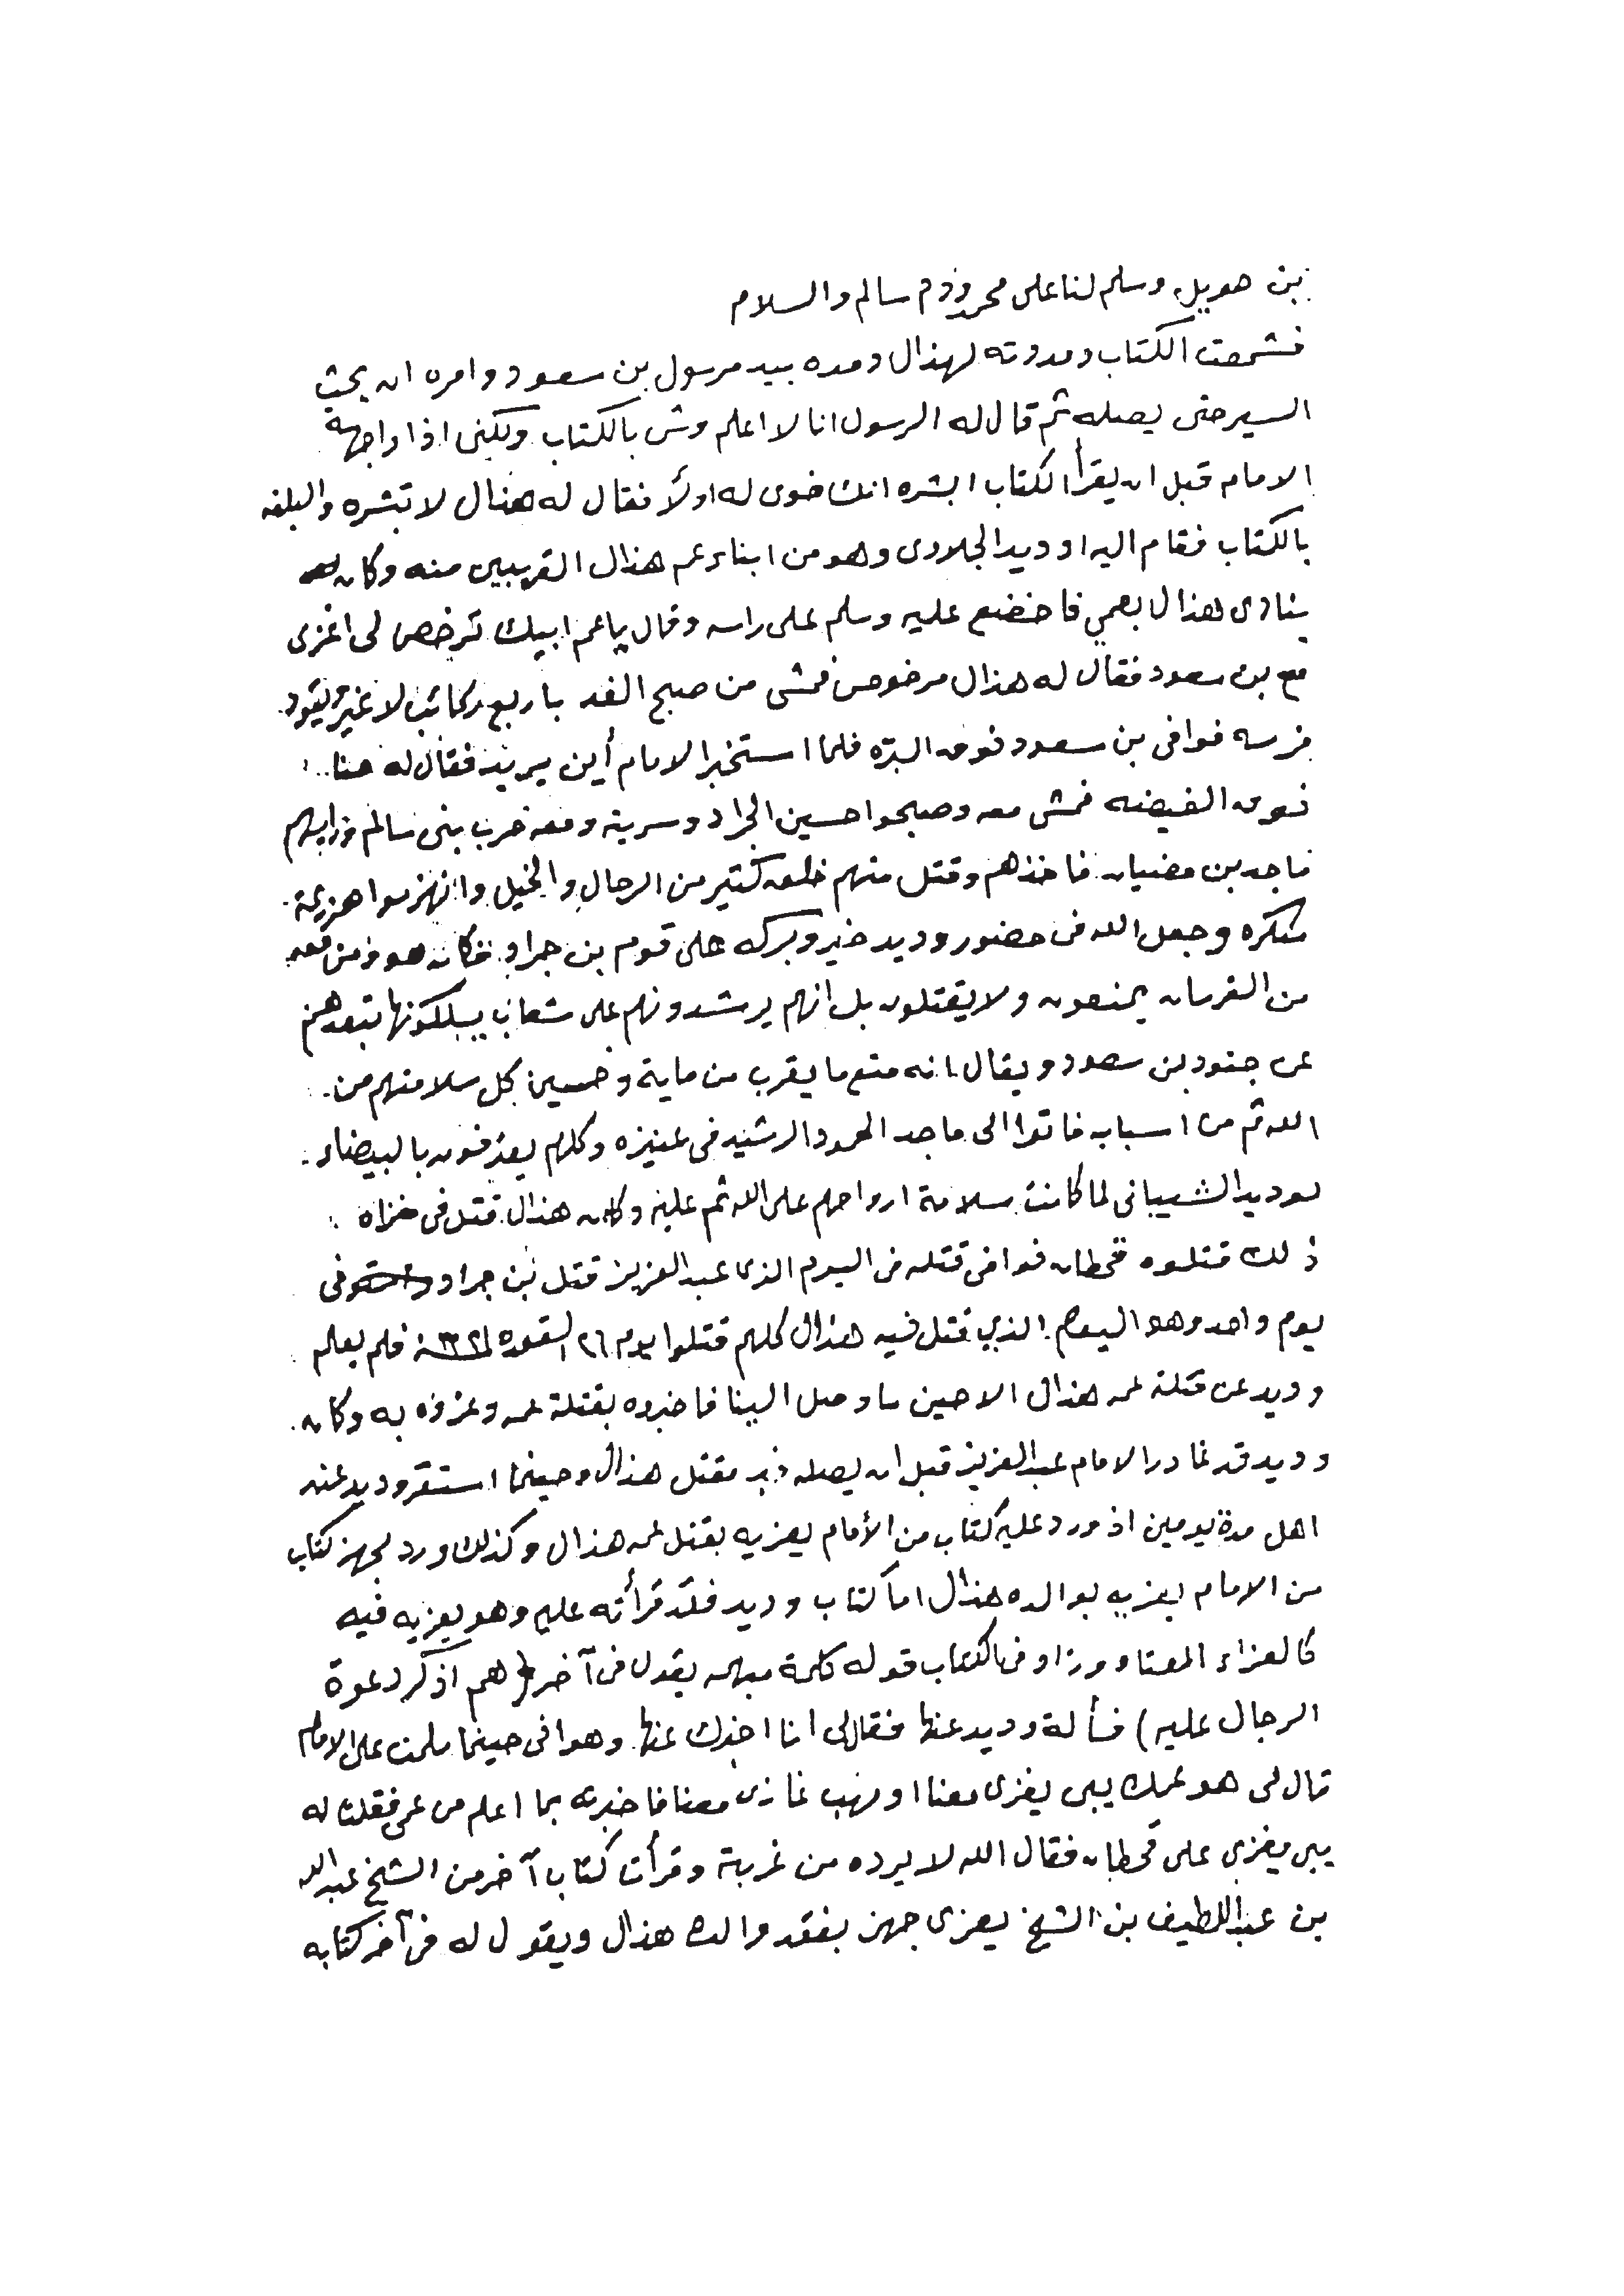 بن هويل وسلم لنا على محمد ودم سالم والسلام
فشمعت الكتاب ومدوته لهذال ومده بيد مرسول بن سعود وامره ان يحث
السير حتى يصله ثم قال له الرسول انا لا اعلم وش بالكتاب ولكنى اذا واجهة
الامام قبل ان يقرأ الكتاب ابشره انك خوى له اولأ فقال له هذال لا تبشره والبلغه
بالكتاب فقام اليه اوديد الجلادى وهو من ابناء عم هذال القريبين منه وكان
ينادى هذال بعمي فاخضع عليه وسلم على راسه وقال ياعم ابيك ترخص لى اغزى
مع بن سعود فقال له هذال مرخوص فمشى من صبح الغد باربع ركائب لا غير ويقود
فرسه فوافى بن سعود فوق البتره فلما استخبر الامام أين يريد فقال له هنا..
فوق الفيضه فمشى معه وصبحوا حسين الجراد وسرية ومعه حرب بنى سالم ورايسهم
ماجد بن مضيان فاخذهم وقتل منهم خلق كثير من الرجال والخيل وانهزموا هزيمة
منكره وجعل الله فى حضور وديد خير وبركه على قوم بن جراد فكان هو ومن معه
من الفرسان يمنعون ولا يقتلون بل انهم يرشدونهم على شعاب يسلكونها تبعدهم
عن جنود بن سعود ويقال انه منع ما يقرب من ماية وخمسين كل سلامتهم من
الله ثم من اسبابه فاتوا الى ماجد الحمود الرشيد فى عنيزه وكلهم يعرفون بالبيضاء
لوديد الشيبانى لما كانت سلامة ارواحهم على الله ثم عليه وكان هذال قتل فى غزاه
ذلك قتلوه قحطان فوافى قتله فى اليوم الذى عبد العزيز قتل بن جراد فى
يوم واحد وهو اليوم الذي قتل فيه هذال كلهم قتلوا يوم ٢٦ القعده فلم يعلم
وديد عن قتلة عمه هذال الا حين ما وصل الينا فاخبروه بقتلة عمه وعزوه به وكان
وديد قد غادر الامام عبد العزيز قبل ان يصله خبر مقتل هذال وحينما استقر وديد عند
اهله مدة يومين اذ ورد عليه كتاب من الأمام يعزيه بقتل عمه هذال وكذلك ورد لجهز كتاب
من الامام يعزيه بوالده هذال اما كتاب وديد فقد قرأته عليه وهو يعزيه فيه
كالعزاء المعتاد وزاد فى الكتاب قوله كلمة مبهمه يقول فى آخر (هم اذكر دعوة
الرجال عليه) فسألة وديد عنها فقال لى انا اخبرك عنها وهو انى حينما سلمت على الامام
قال لى هو عمك يبى يغزى معنا او مهب غازى معنا فاخبرته بما اعلم من عمى فقلت له
يبى يغزى على قحطان فقال الله لا يرده من غربة وقرأت كتاب آخر من الشيخ عبد الله
بن عبد اللطيف بن الشيخ يعزى جهز بفقد والده هذال ويقول له فى آخر كتابه